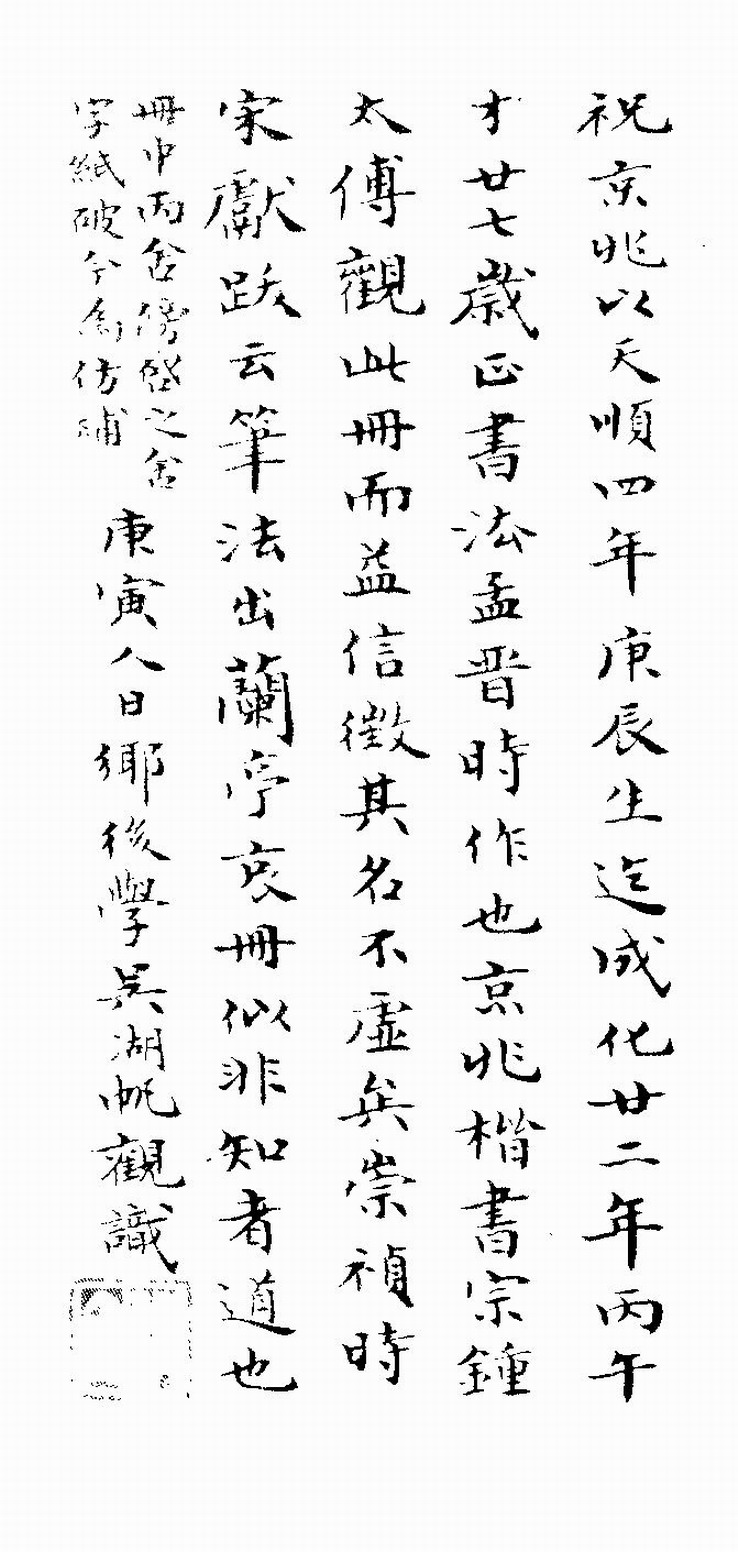 祝京兆以天順四年庚辰生迄成化廿二年丙午
才廿七歲正書法孟晋時作也京兆楷書宗鍾
太傅觀此冊而益信徵其名不虛矣崇禎時
宋獻跋云筆法出蘭亭哀冊似非知者道也
冊中丙舍傍啓之舍
字紙破今為仿補
庚寅人日鄉後學吳湖帆觀識